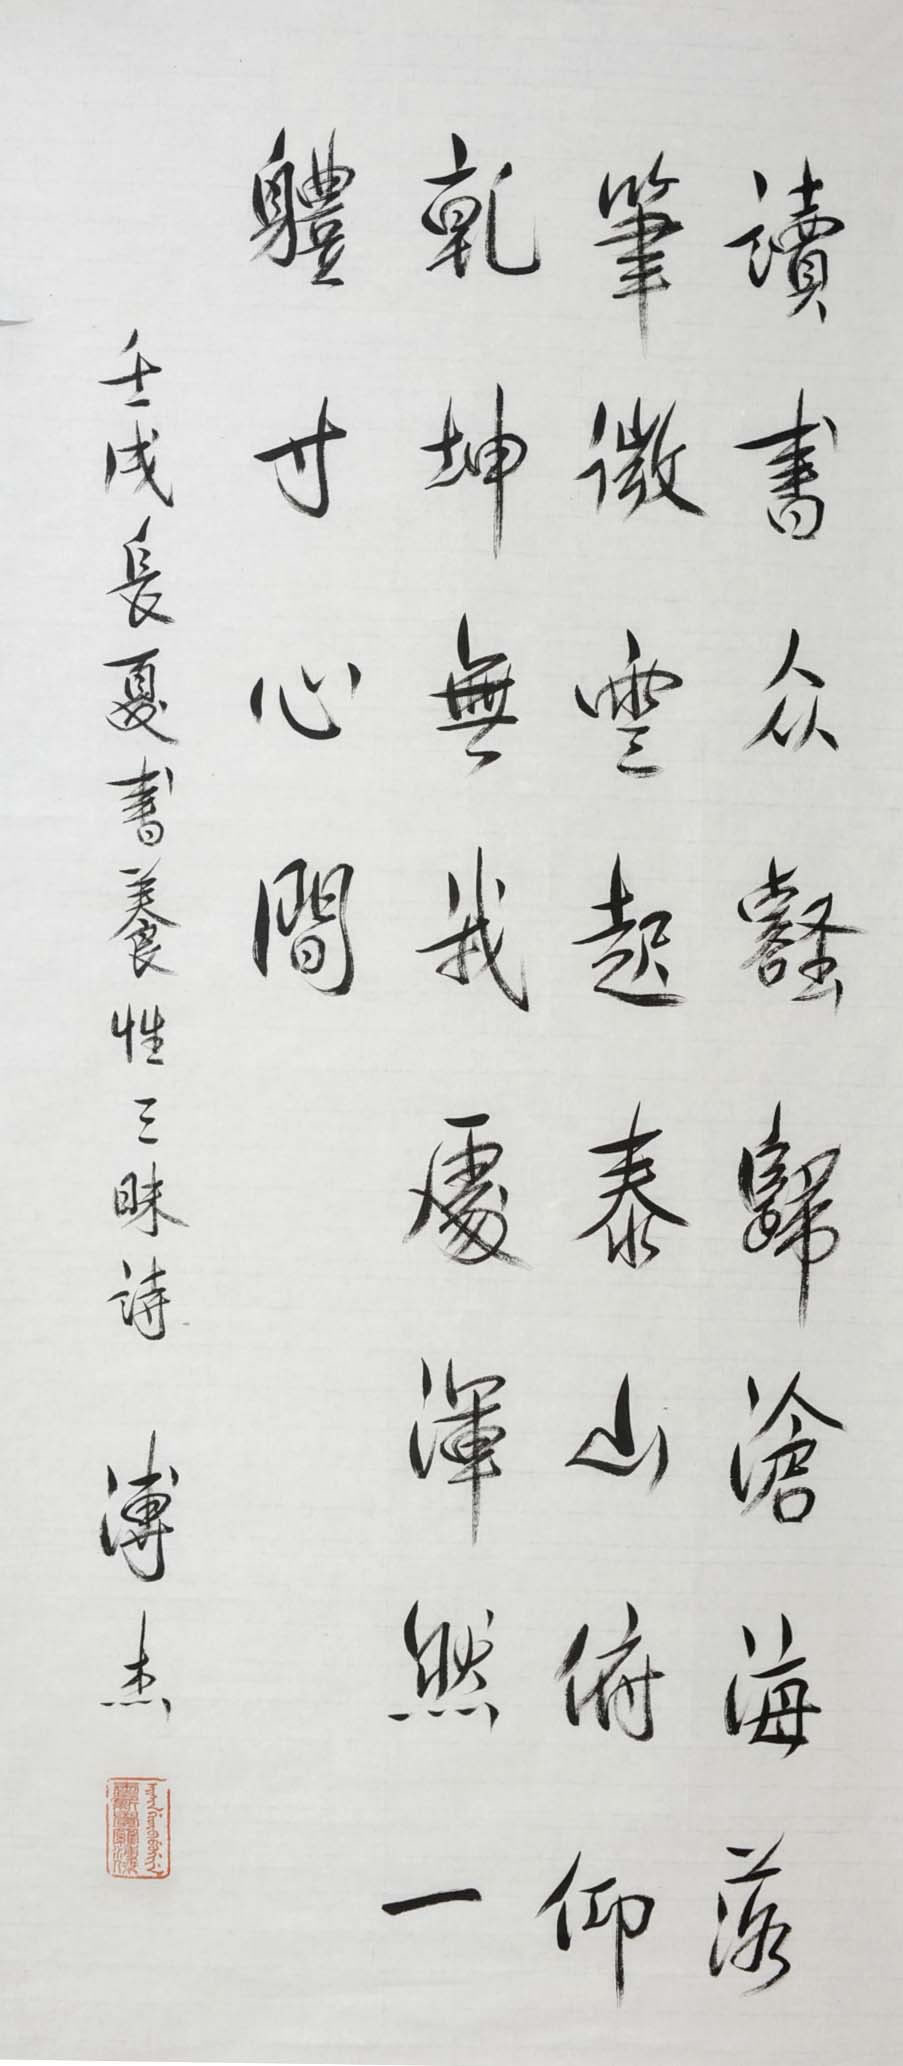 讀書众壑歸滄海落
筆微雲起泰山俯仰
乾坤無我處渾然一
體寸心間
壬戌長夏書養性三昧詩 溥杰